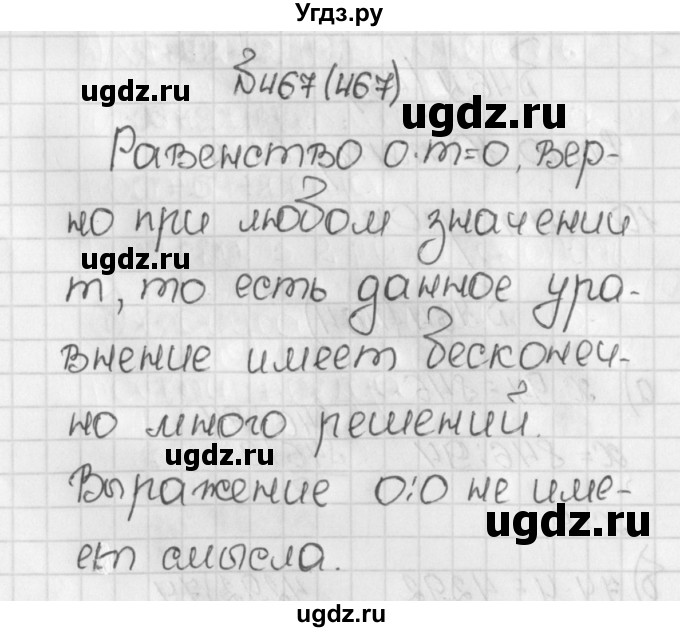 Угдз.ру
№467(467)
ugdz.ru
ugdz.ru
Равенство 0·m=0, вер-
но при любом значении
ugdz.ru
m, то есть данное ура-
внение имеет бесконеч-
но много решений.
ugdz.ru
Выражение 0:0 не име-
ugdz.ru
ет смысла.
ugdz.ru